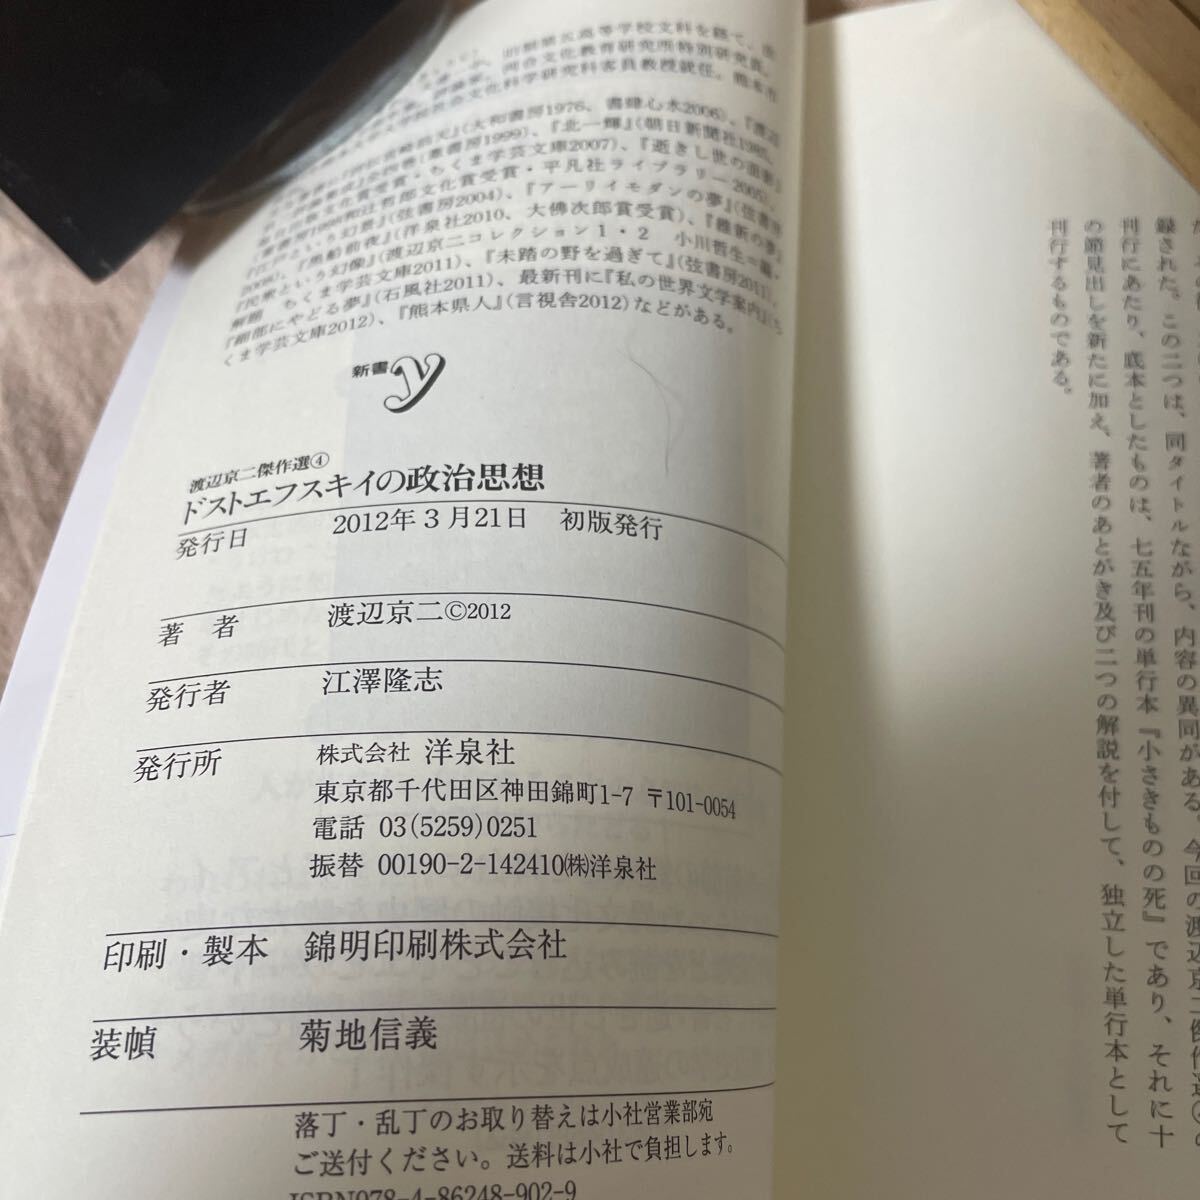 旧制第五高等学校文科を経て、法
評論家。河合文化教育研究所特別研究員。
社会文化科学研究科客員教授就任。熊本市
(大和書房1976、書肆心水2006)、『渡辺
(葦書房1999)、『北一輝』(朝日新聞社1985、
ちくま学芸文庫2007)、『逝きし世の面影』
(葦書房1998和辻哲郎文化賞受賞・平凡社ライブラリー2005)、
『江戸という幻景』(弦書房2004)、『アーリイモダンの夢』(弦書房
2008)、『黒船前夜』(洋泉社2010、大佛次郎賞受賞)、『維新の夢』
『民衆という幻像』(渡辺京二コレクション1・2 小川哲生=編・
解題 ちくま学芸文庫2011)、『未踏の野を過ぎて』(弦書房2011)、
『細部にやどる夢』(石風社2011)、最新刊に『私の世界文学案内』(ち
くま学芸文庫2012)、『熊本県人』(言視舎2012)などがある。
新書y
渡辺京二傑作選④
ドストエフスキイの政治思想
発行日 2012年3月21日 初版発行
著 者 渡辺京二©2012
発行者 江澤隆志
発行所 株式会社 洋泉社
東京都千代田区神田錦町1-7 〒101-0054
電話 03(5259)0251
振替 00190-2-142410㈱洋泉社
印刷・製本 錦明印刷株式会社
装幀 菊地信義
落丁・乱丁のお取り替えは小社営業部宛
ご送付ください。送料は小社で負担します。
ISBN978-4-86248-902-9
録された。この二つは、同タイトルながら、内容の異同がある。今回の渡辺京二傑作選
刊行にあたり、底本としたものは、七五年刊の単行本『小さきものの死』であり、それに十
の節見出しを新たに加え、著者のあとがき及び二つの解説を付して、独立した単行本として
刊行するものである。